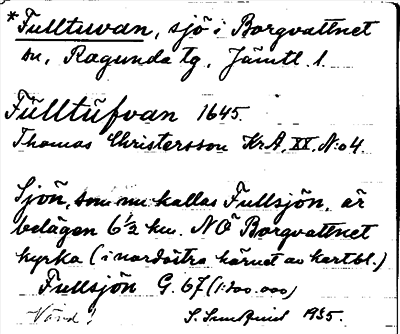 *Fulltuvan, sjö i Borgvattnet
sn, Ragunda tg, Jämtl. l.
Fülltüfvan 1645.
Thomas Christersson KrA, XX, N:o 4.
Sjön, som nu kallas Fullsjön, är
belägen 6½ km. NÖ Borgvattnet
kyrka (i nordöstra hörnet av kartbl.)
Fullsjön G. 67 (1:200.000)
1935.